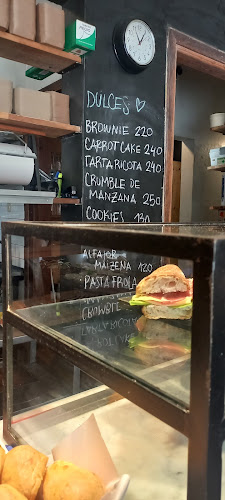 DULCES
BROWNIE 220
CARROT CAKE 240
TARTA RICOTA 240
CRUMBLE DE
MANZANA 250
COOKIES 130
ALFAJOR
MAIZENA 120
PASTA FROLA